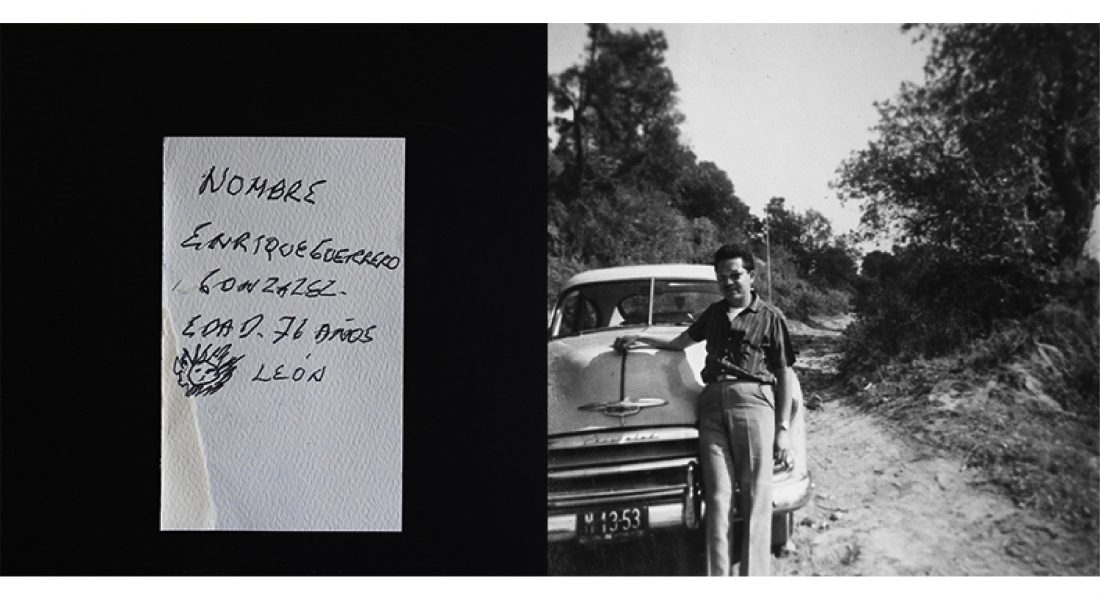 NOMBRE
ENRIQUE GUERRERO
GONZALEZ-
EDAD. 76 AÑOS
LEÓN
Chevrolet
13-53